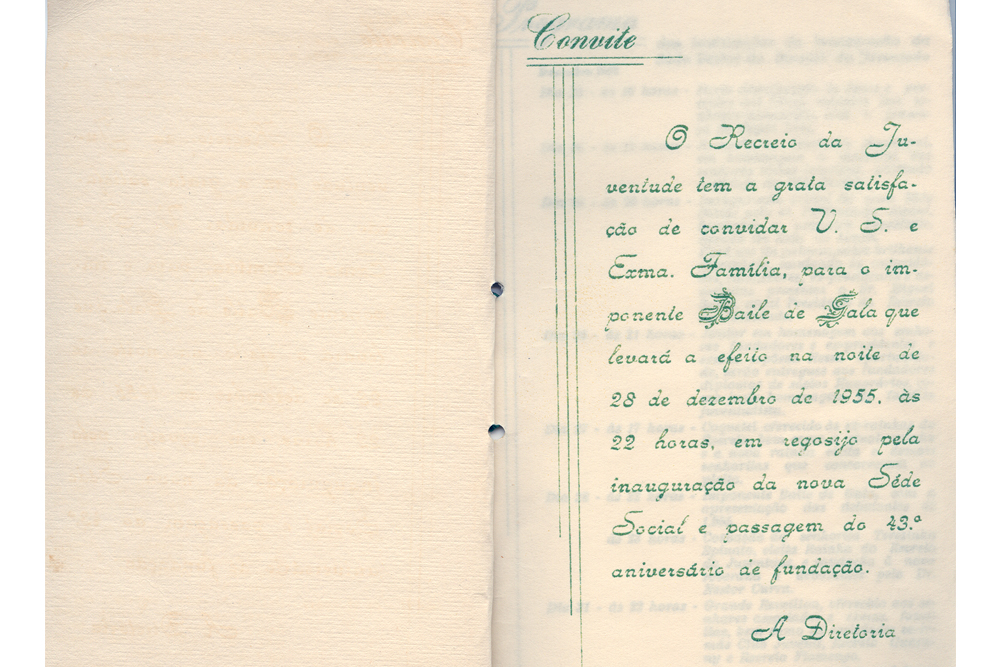 Convite
O Recreio da Ju-
ventude tem a grata satisfa-
ção de convidar V. S. e
Exma. Família, para o im-
ponente Baile de Gala que
levará a efeito na noite de
28 de dezembro de 1955, às
22 horas, em regosijo pela
inauguração da nova Séde
Social e passagem do 43.º
aniversário de fundação.
A Diretoria